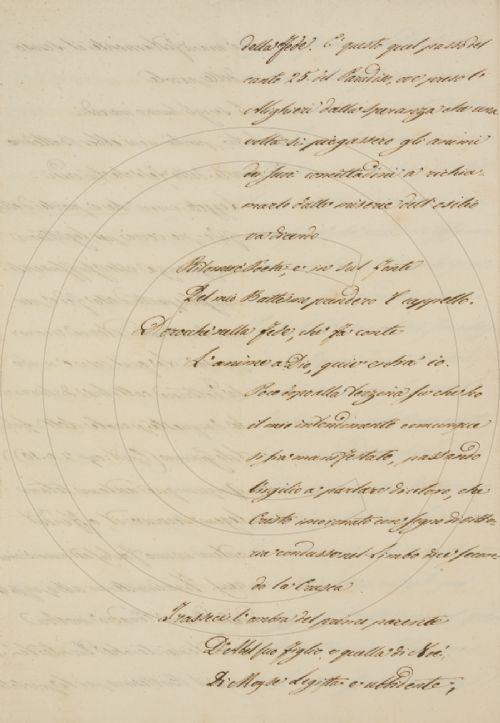 della fede. È questo quel passo del
canto 25. del Paradiso, ove preso l'
Alighieri dalla speranza che una
volta si piegassero gli animi
de' suoi concittadini a richia-
marlo dalle miserie dell'esilio
va dicendo
Ritornerò Poeta, e in sul fonte
Del mio Battesmo prenderò 'l cappello.
Perocchè nella fede, che fa conte
L'anime a Dio, quivi entra' io.
Poco dopo alla terzina su che ho
il mio intendimento comunque
si sia manifestato, passando
Virgilio a parlare di coloro, che
Cristo incoronato con segno di vitto-
ria condusse nel Limbo dice secon-
do la Crusca
Trasseci l'ombra del primo parente
D'Abel suo figlio, e quella di Noè,
Di Moysè legista e ubbidente;